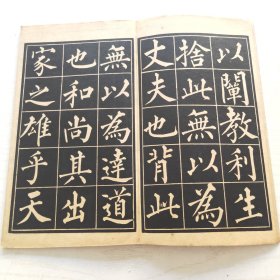 以闡教利生
捨此無以為
丈夫也背此
無以為達道
也和尚其出
家之雄乎天